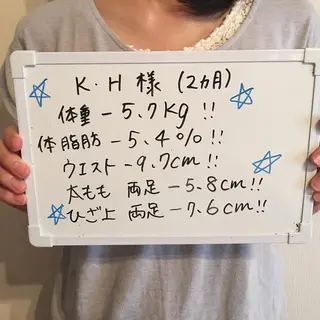 K・H 様 (2カ月)
体重 -5.7kg !!
体脂肪 -5.4%!!
ウエスト -9.7cm!!
太もも 両足 -5.8cm!!
ひざ上 両足 -7.6cm!!